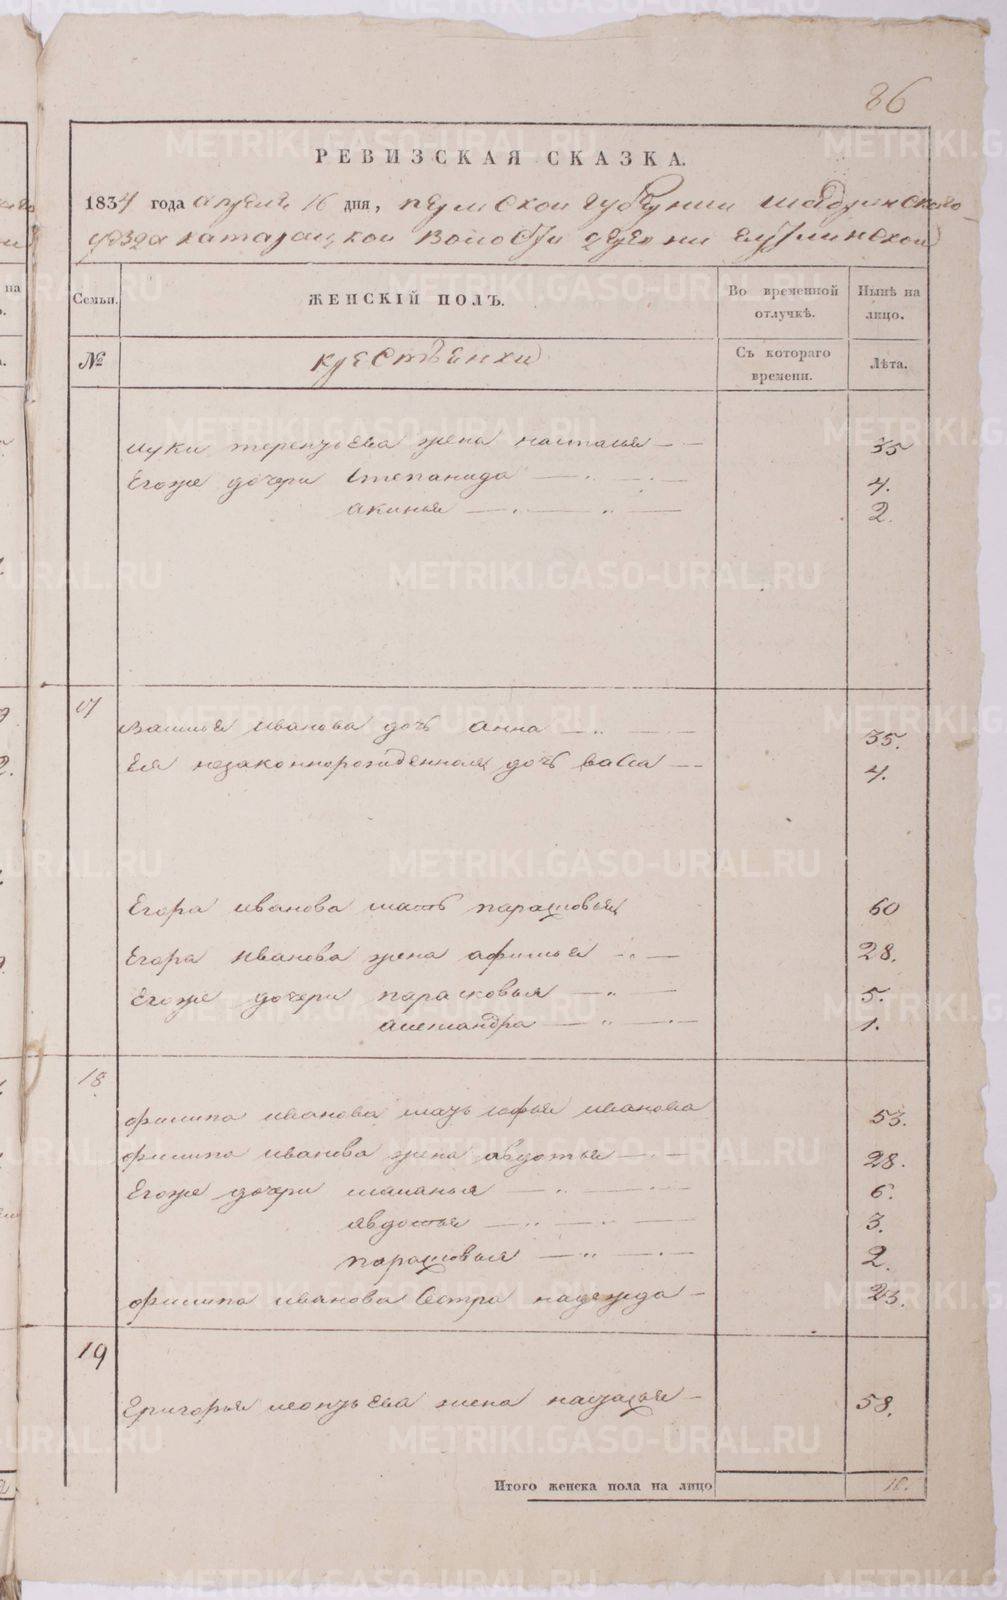 86
РЕВИЗСКАЯ СКАЗКА.
1834 года апреля 16 дня, пермской губернии шадринского
уезда катарацкой волости деревни
Семьи. ЖЕНСКІЙ ПОЛЪ. Во временной отлучкѣ. Нынѣ на лицо.
№ крестьянки Съ котораго времени. Лѣта.
луки терентьева жена наталья 35
Егоже дочери степанида 4.
акинья 2.
Василья иванова дочь анна 35.
Ея незаконнорожденная дочь васса 4.
Егора иванова мать парасковья 60
Егора иванова жена афимья 28.
Егоже дочери парасковья 5.
александра 1.
18
филипа иванова мать софья иванова 53.
филипа иванова жена авдотья 28.
Егоже дочери маланья 6.
явдотья 3.
парасковья 2.
филипа иванова сестра надежда 23.
19
Григорья леонтьева жена наталья 58.
Итого женска пола на лицо 18.
METRIKI.GASO-URAL.RU